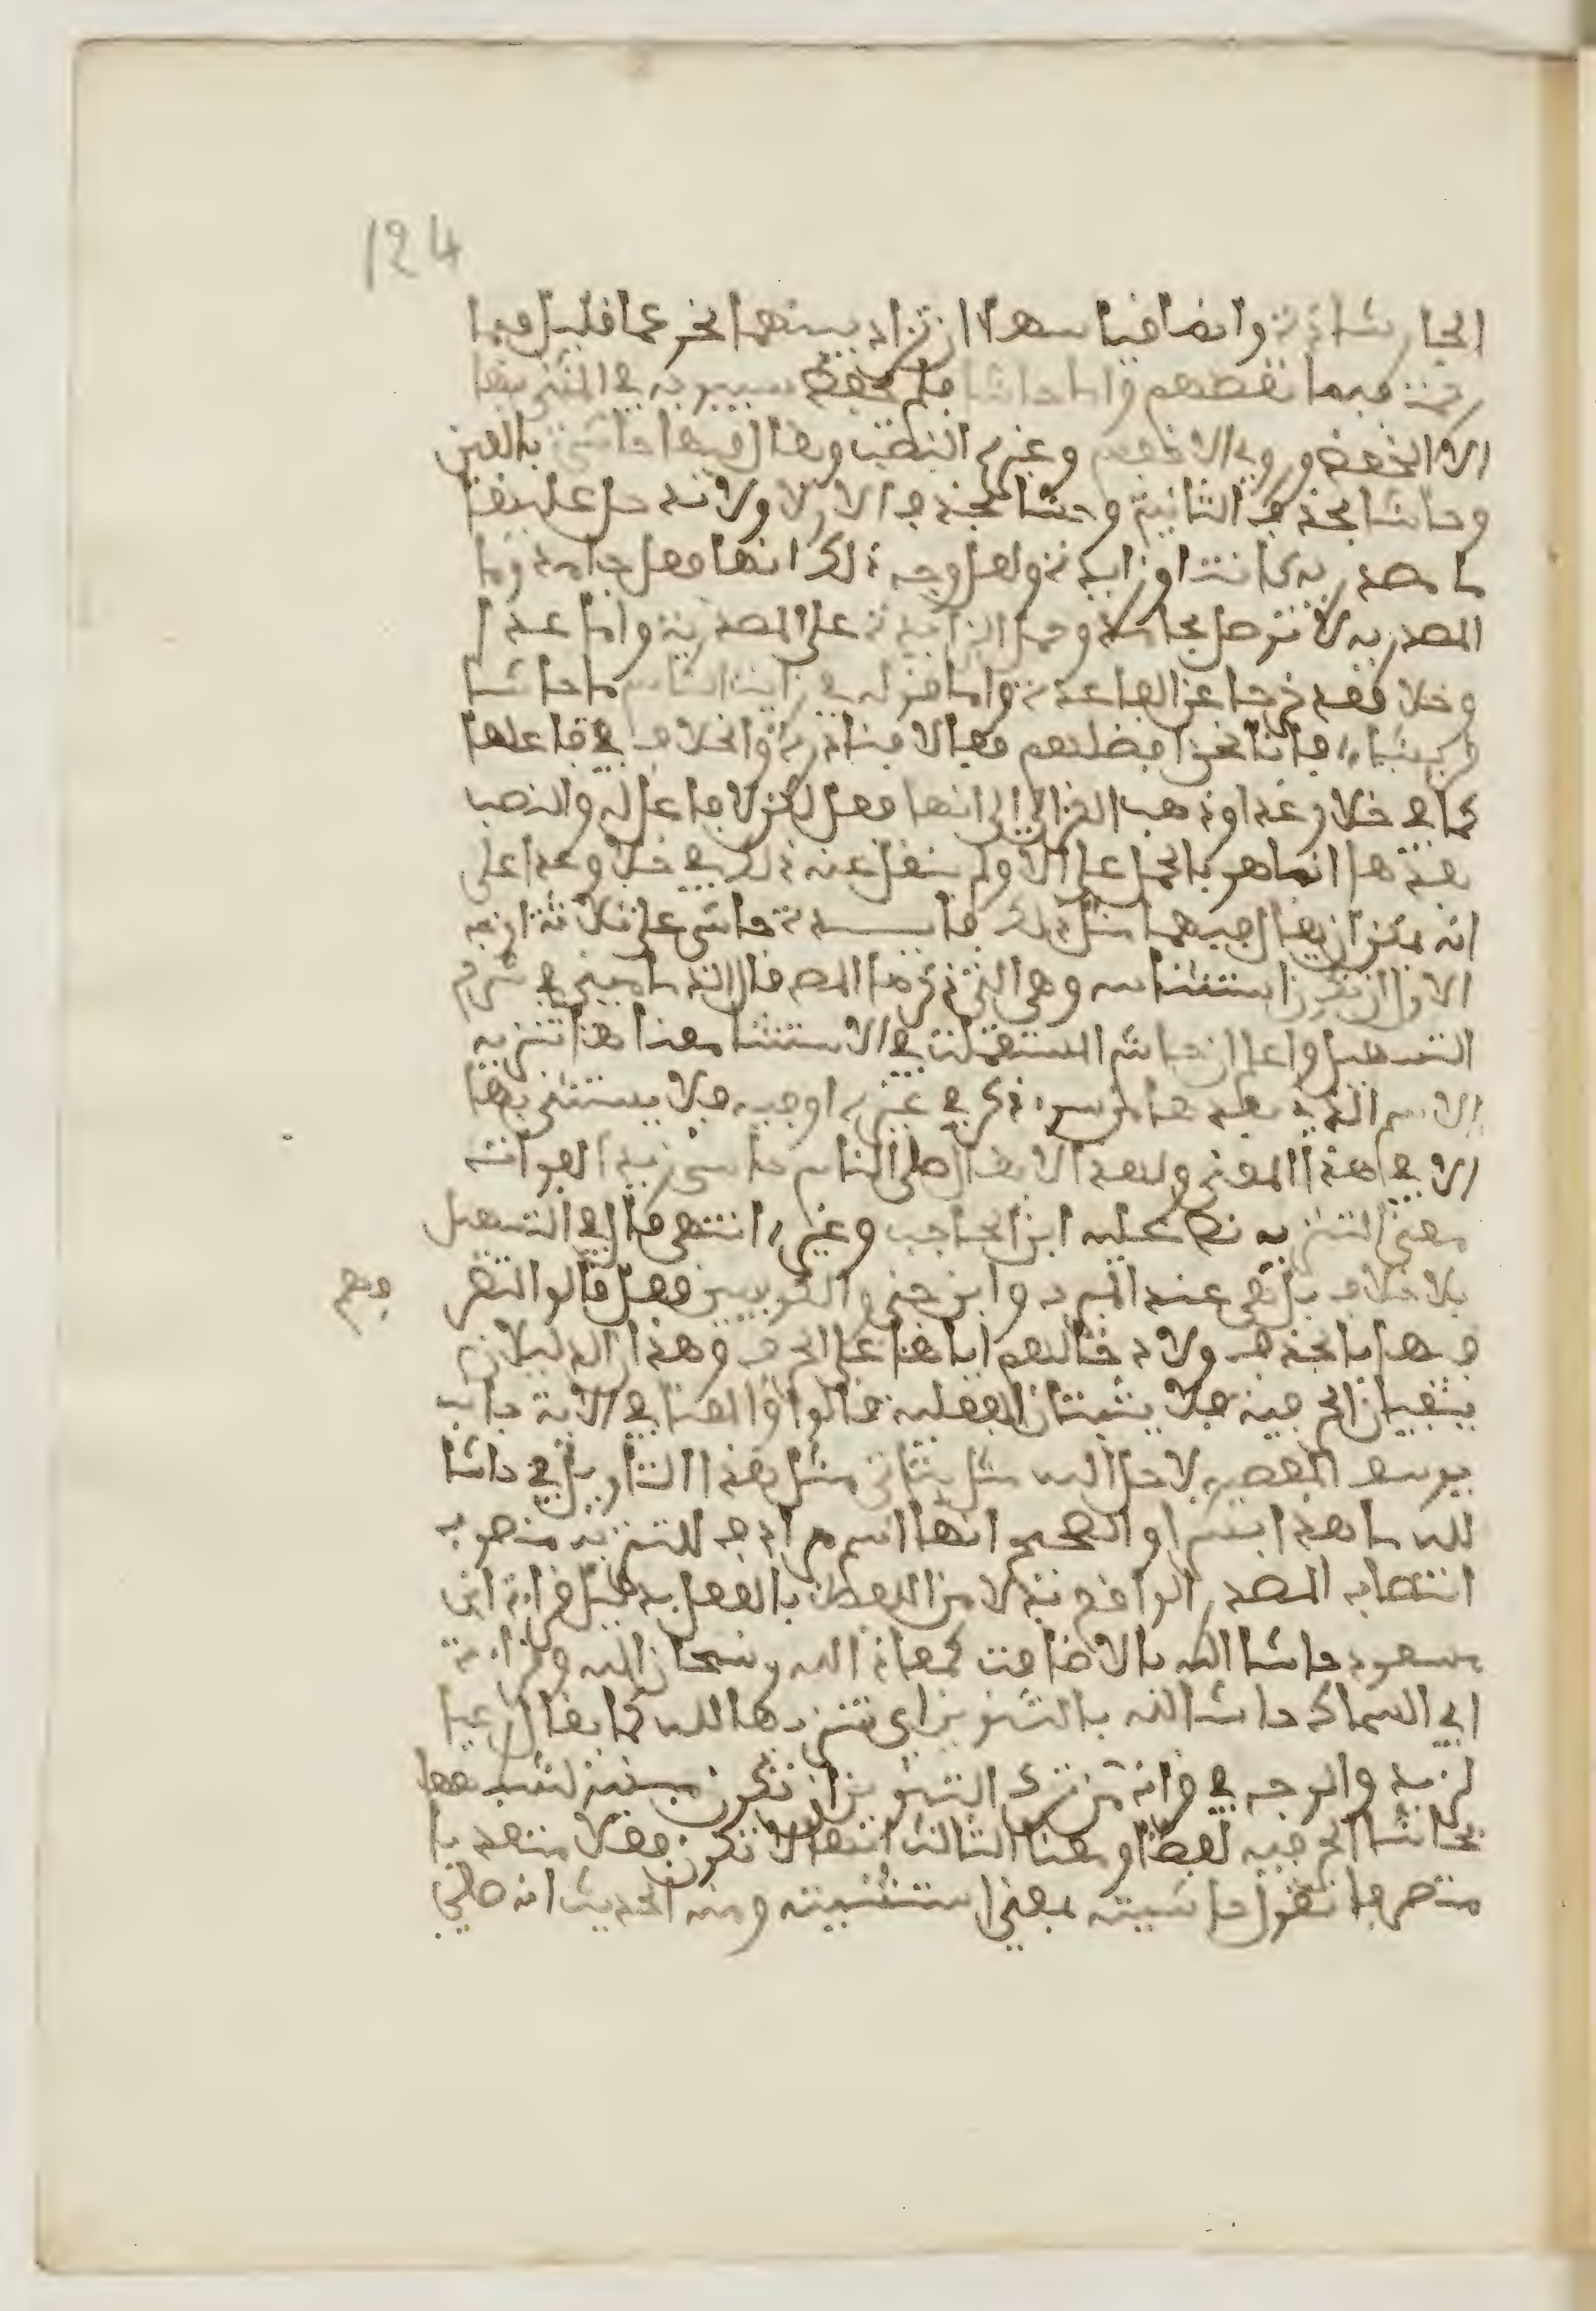 124
الجار شاذة وايضا فيا سهلا ان تزاد بينهما نحو عما قليل فبما
رحمة فبما نقضهم واما حاشا فلم يحفظ سيبويه في المستثنى بها
الا الخفض وروى الاخفش وغيره النصب ويقال فيها حاش بالغين
وحاشا بحذف الثانية وحشا بحذف الاولى ولا تدخل عليها
ما مصدرية كانت او زايدة ولعل وجه ذلك انها فعل جامد وما
المصدرية لا توصل بجامد وحمل الزايدة على المصدرية واما عدا
وخلا فقد خرجا عن القاعدة واما قوله رايت الناس ما حاشا
قريشا، فانا نحن افضلهم فعالا فشاذ والخلاف في فاعلها
كما في خلا وعدا وذهب الفرا الى انها فعل لكن لا فاعل له والنصب
بعدها انما هو بالحمل على الا ولم ينقل عنه ذلك في خلا وعدا على
انه يمكن ان يقال فيهما مثل ذلك فايدة حاشى على ثلاثة اوجه
الاول ان تكون استثنايه وهي التي ذكرها المص قال الدماميني في شرح
التسهيل واعلم ان حاشا المستعملة في الاستثنا معناها تنزيه
الاسم الذي بعدها من سوء ذكر في غيره او فيه فلا يستثنى بها
الا في هذا المعنى ولهذا لا يقال صلى الناس حاشى زيدا لفوات
معنى التنزيه نص عليه ابن الحاجب وغيره انتهى قال في التسهيل
بلا خلاف بل هي عند المبرد وابن جني والكوفيين فعل قالوا لتصر
فهم
فيها بالحذف ولادخالهم اياها على الحرف وهذان الدليلان
ينفيان الحرفية فلا يثبتان الفعلية قالوا والمعنى في الاية جانب
يوسف المعصية لاجل الله ولا يتاتى مثل هذا التاويل في حاشا
لله ما هذا بشرا والصحيح انها اسم مرادف للتنزيه منصوب
انتصاب المصدر الواقع بدلا من اللفظ بالفعل بدليل قراءة ابن
مسعود حاشا الله بالاضافة كمعاذ الله وسبحان الله وقراءة
ابي السماك حاشا لله بالتنوين اي تنزيها لله كما يقال رعيا
لزيد والوجه في قراءة من ترك التنوين ان تكون مبنية لشبهها
بحاشا الحرفية لفظا ومعنا الثالث انها لا تكون فعلا متعديا
متصرفا تقول حاشيته بمعنى استثنيته ومنه الحديث انه صلى